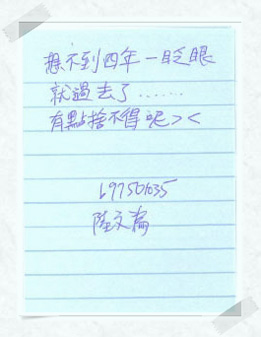 想不到四年一眨眼
就過去了......
有點捨不得呢><
69750635
陸文裔